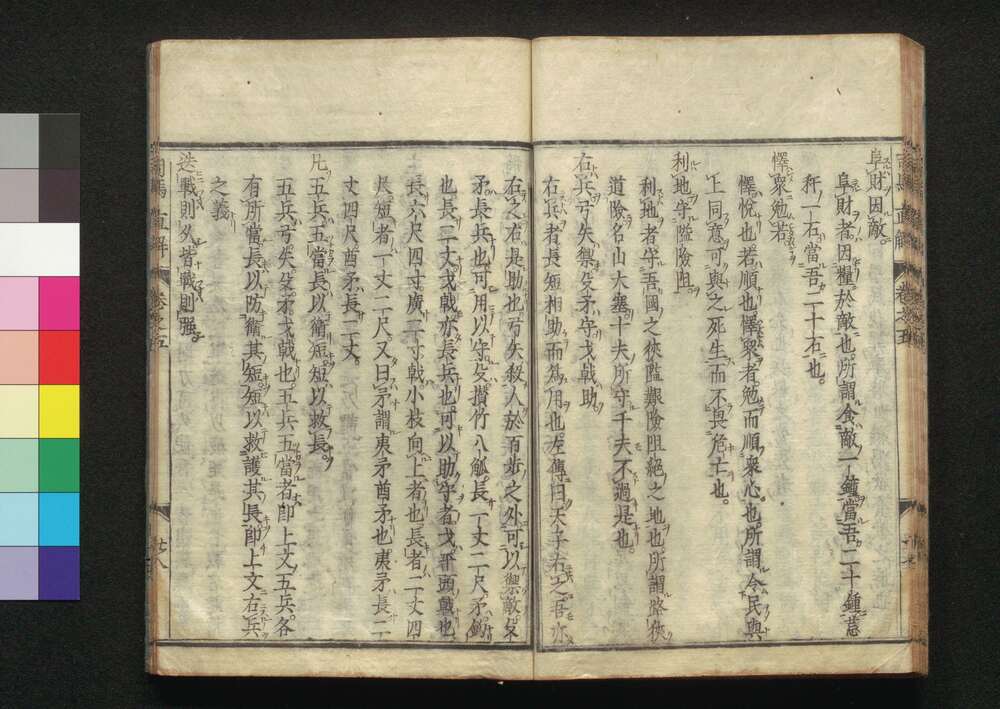 阜財因敵
阜財者因糧於敵也所謂食敵一鍾當吾二十鍾䓤
秆一石當吾二十石也
懌衆勉若
懌悅也若順也懌衆者勉而順衆心也所謂令民與
上同意可與之死生而不畏危亡也
利地守隘險阻
利地者守吾國之狹隘艱險阻絕之地也所謂路狹
道險名山大塞十夫所守千夫不過是也
右兵弓矢禦殳矛守戈戟助
右兵者長短相助而爲用也左傳曰天子右之吾亦
右之右是助也弓矢殺人於百步之外可以禦敵殳
矛長兵也可用以守殳攅竹八觚長一丈二尺矛鉤
也長二丈戈戟亦長兵也可以助守者戈平頭戟也
長六尺四寸廣二寸戟小枝向上者也長者二丈四
尺短者一丈二尺又曰矛謂夷矛酋矛也夷矛長二
丈四尺酋矛長二丈
凡五兵五當長以衞短短以救長
五兵弓矢殳矛戈戟也五兵五當者即上文五兵各
有所當長以防衞其短短以救護其長即上文右兵
之義
迭戰則久皆戰則強
直解 卷之五 廿八